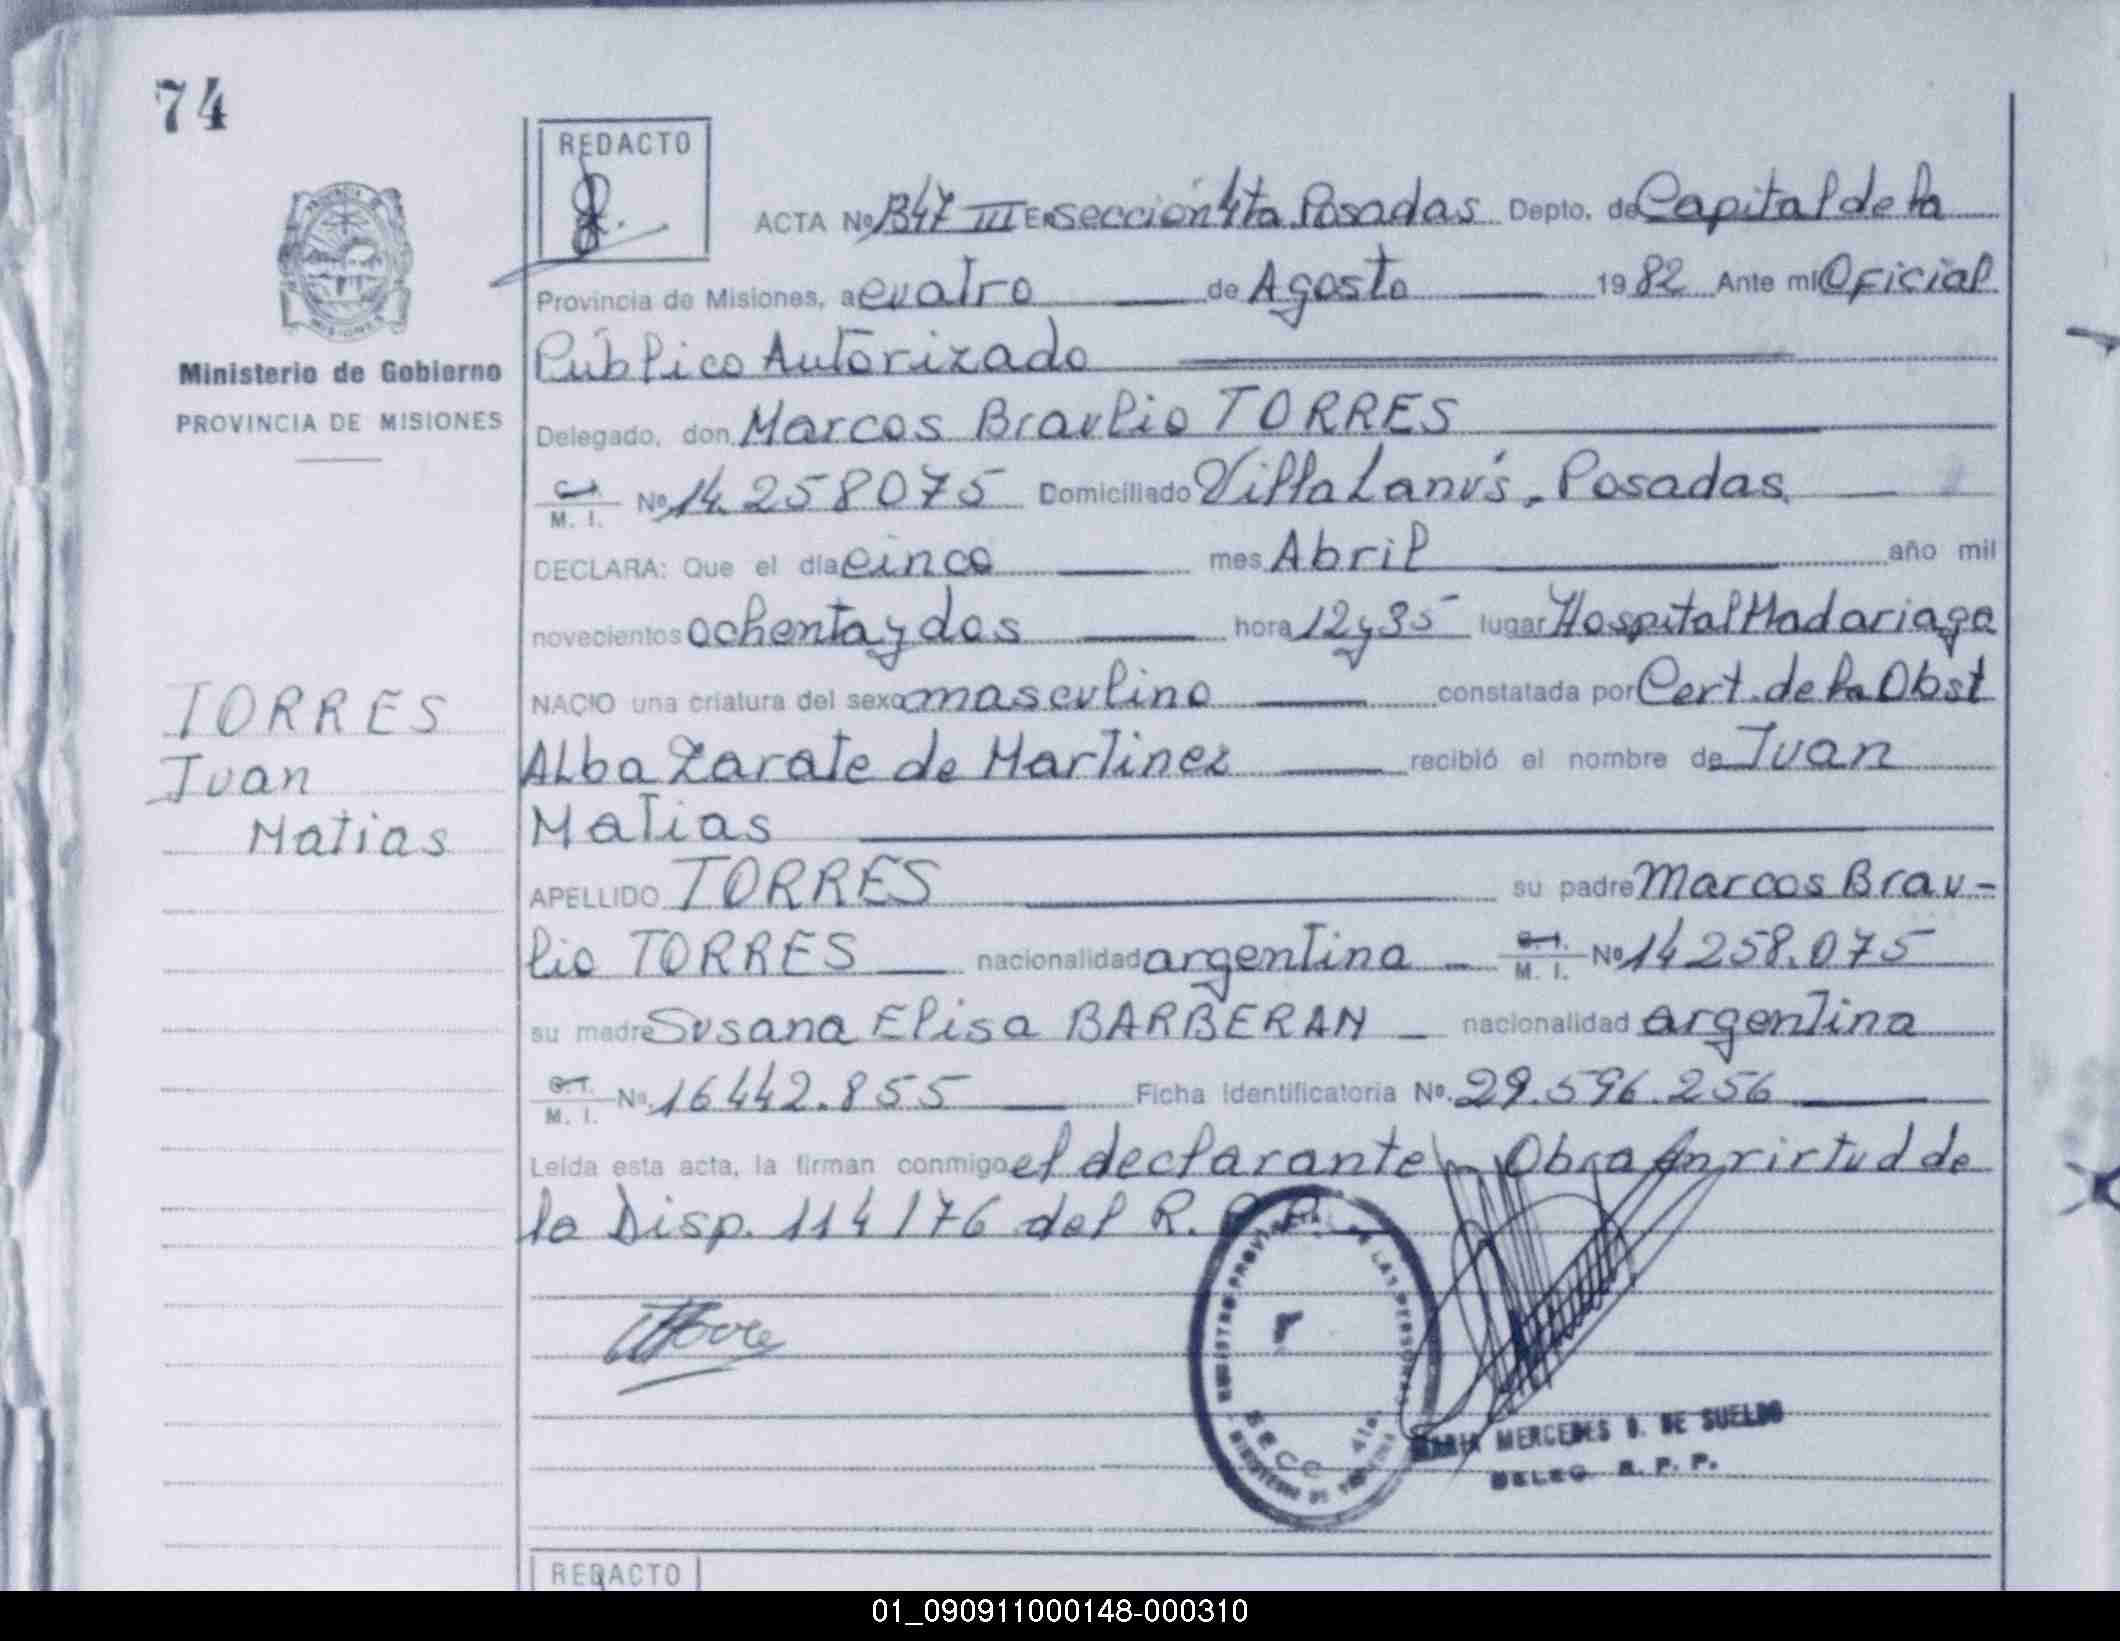 74
REDACTO
ACTA Nº B47 III En sección 4ta Posadas Depto. de Capital de la
Provincia de Misiones, a cuatro de Agosto 1982 Ante mi Oficial
Ministerio de Gobierno
PROVINCIA DE MISIONES
Público Autorizado
Delegado, don Marcos Braulio TORRES
M. I. Nº 14.258075 Domiciliado Villa Lanús, Posadas
DECLARA: Que el día cinco mes Abril año mil
novecientos ochenta y dos hora 12 y 35 lugar Hospital Madariaga
NACIO una criatura del sexo masculino constatada por Cert. de la Obst
Alba Zarate de Martinez recibió el nombre de Juan
Matias
TORRES
Juan
Matias
APELLIDO TORRES su padre Marcos Brau-
lio TORRES nacionalidad argentina C.I. M. I. Nº 14258.075
su madre Susana Elisa BARBERAN nacionalidad argentina
C.I. M. I. Nº 16442.855 Ficha Identificatoria Nº. 29.596.256
Leída esta acta, la firman conmigo el declarante Obra en virtud de
la Disp. 114/76 del R.P.P.
REGISTRO PROVINCIAL DE LAS PERSONAS
SECC 4ta.
MINISTERIO DE
MARIA MERCEDES D. DE SUELDO
DELEG. R. P. P.
REDACTO
01_090911000148-000310